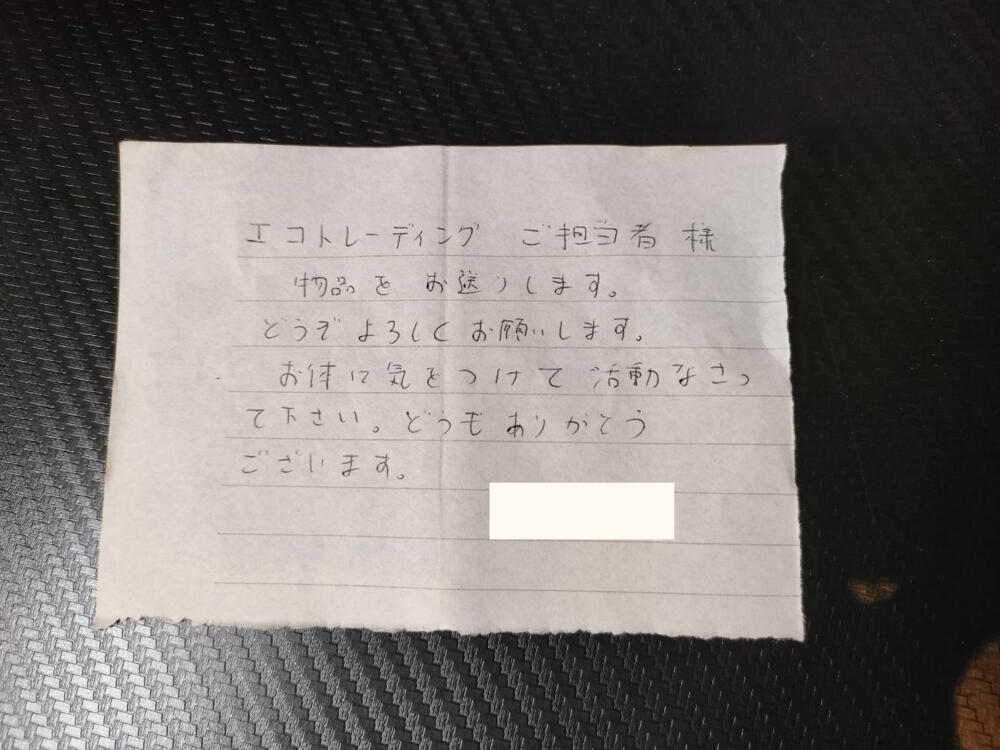 エコトレーディング ご担当者 様
物品を お送りします。
どうぞ よろしく お願いします。
お体に気をつけて 活動なさっ
て下さい。どうも ありがとう
ございます。